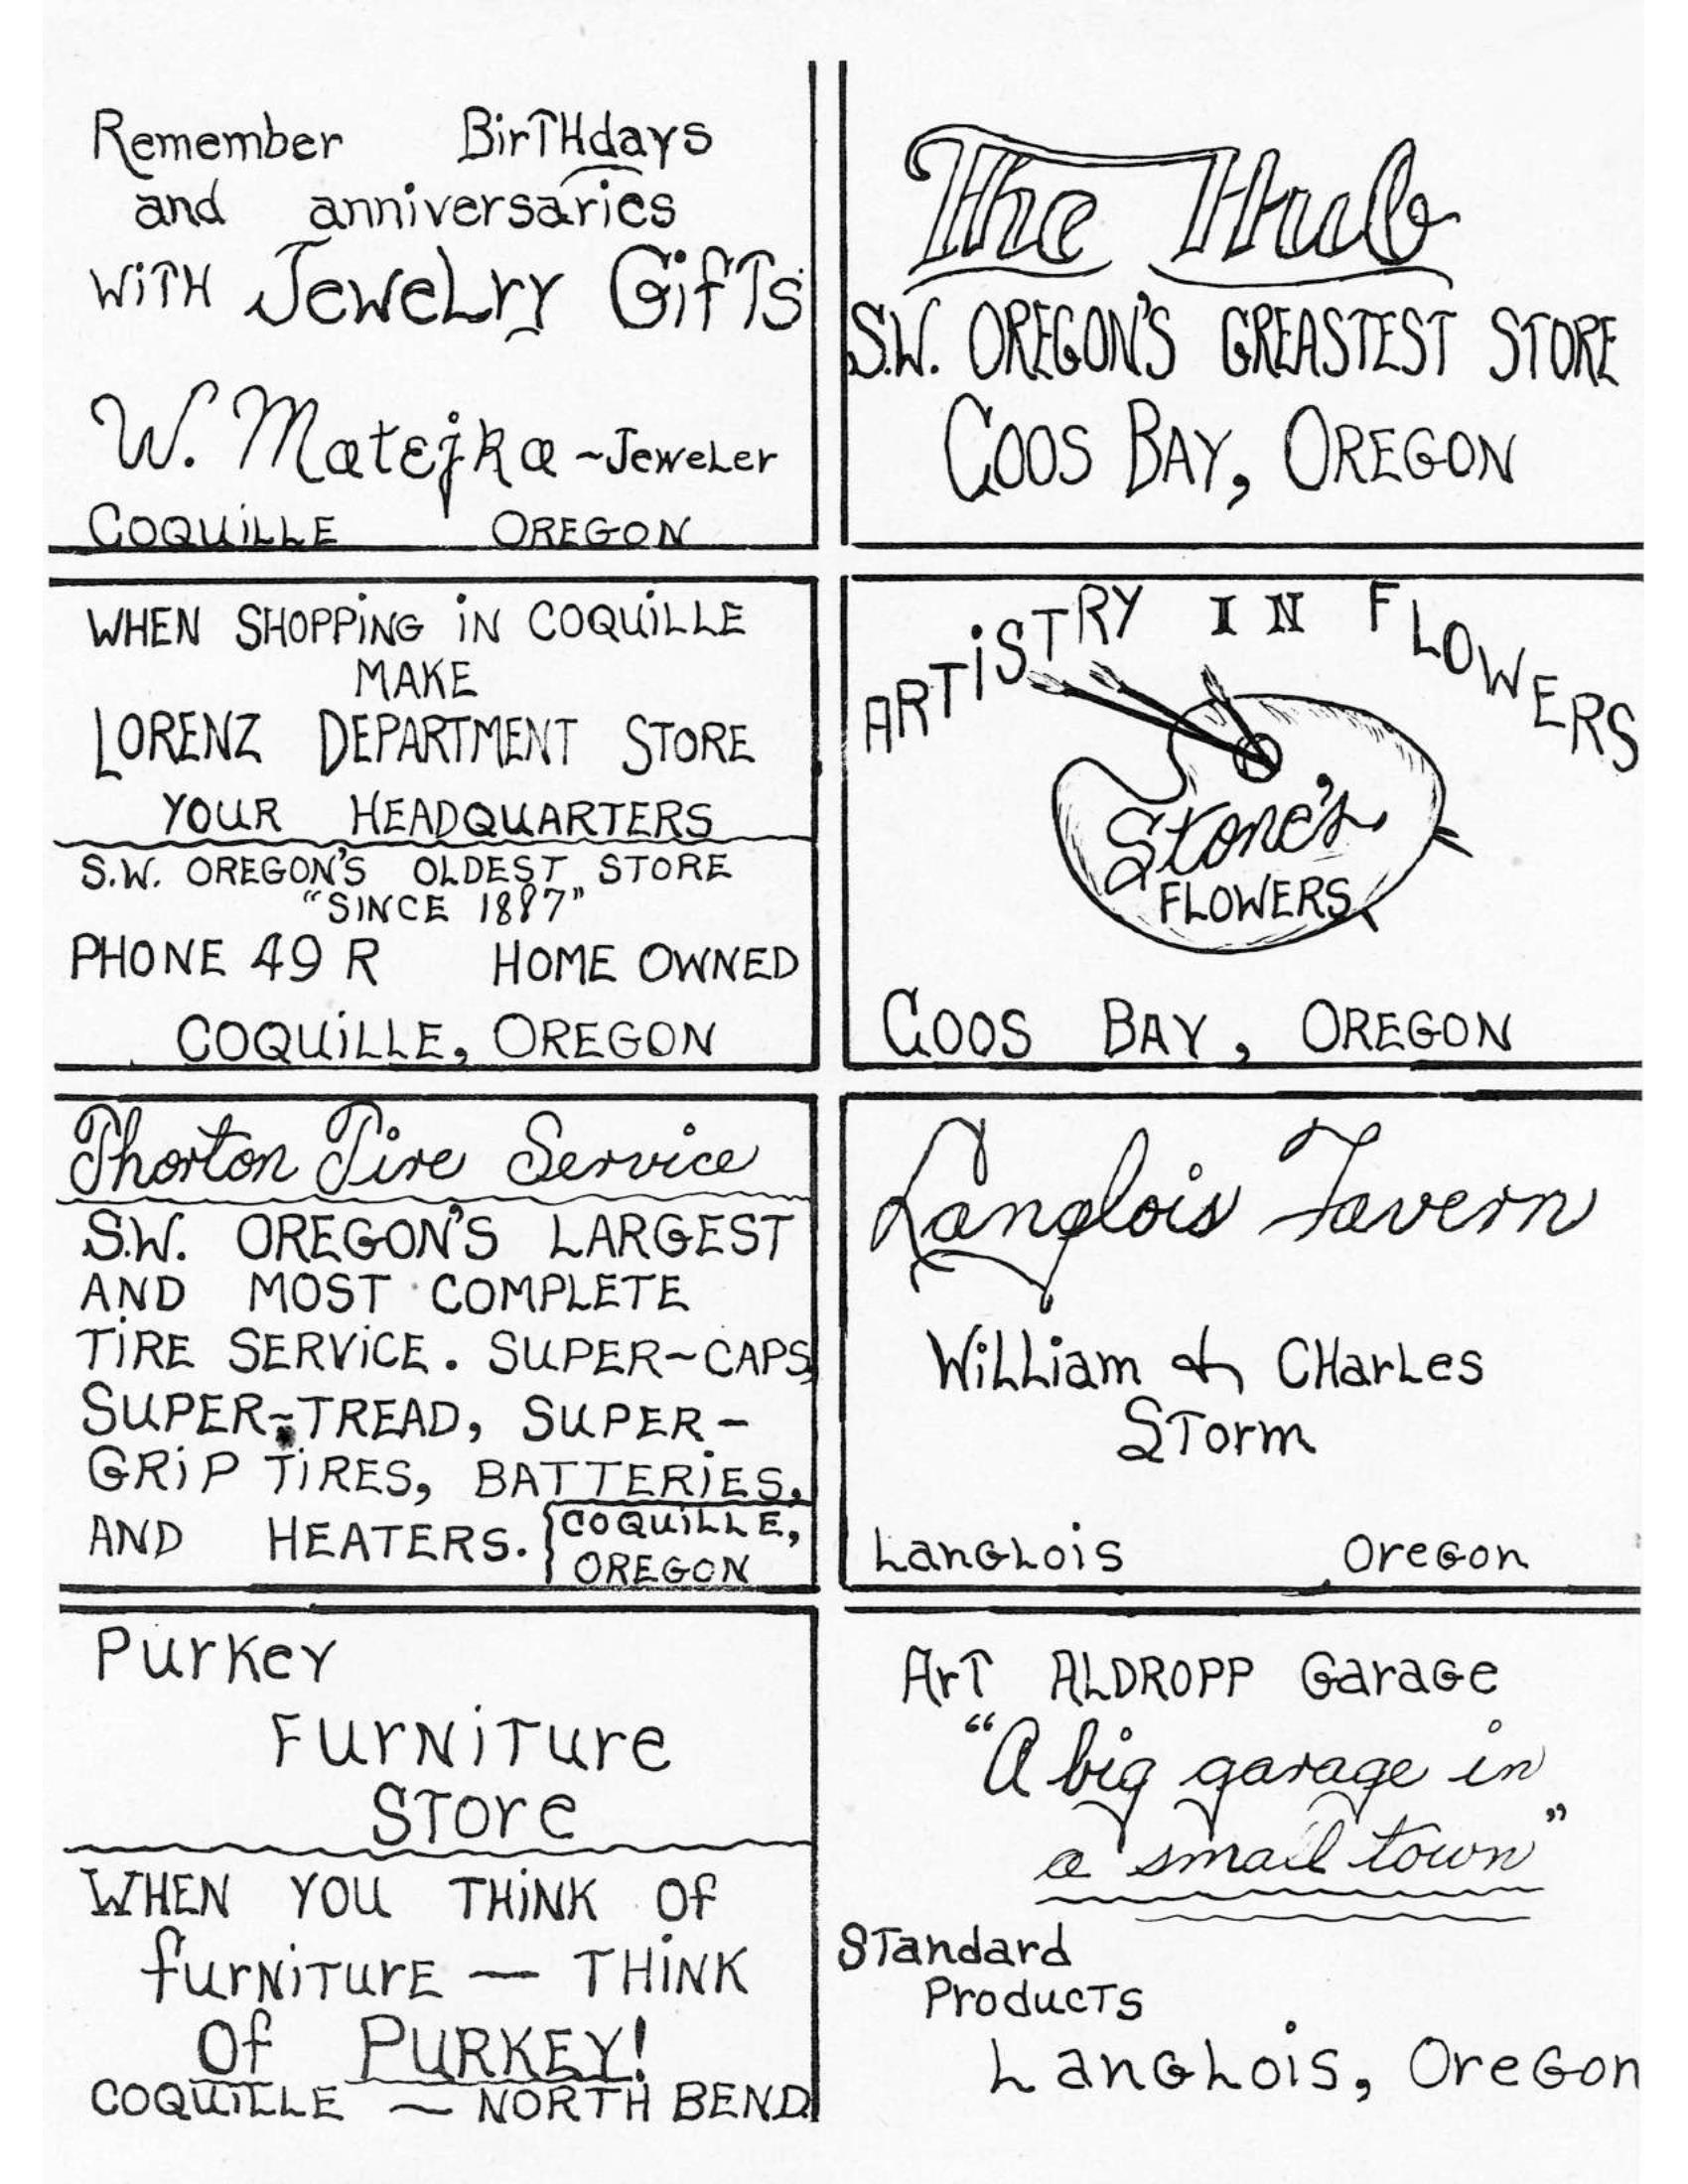 Remember BirTHdays
and anniversaries
WiTH JeweLry GifTs
W. Matejka ~ JeweLer
COQUiLLE OREGON
The Hub
S.W. OREGON'S GREASTEST STORE
COOS BAY, OREGON
WHEN SHOPPiNG iN COQUiLLE
MAKE
LORENZ DEPARTMENT STORE
YOUR HEADQUARTERS
S.W. OREGON'S OLDEST STORE
"SINCE 1887"
PHONE 49 R HOME OWNED
COQUiLLE, OREGON
ARTiSTRY IN FLOWERS
Stone's
FLOWERS
COOS BAY, OREGON
Thorton Tire Service
S.W. OREGON'S LARGEST
AND MOST COMPLETE
TiRE SERViCE. SUPER-CAPS
SUPER-TREAD, SUPER-
GRiP TiRES, BATTERiES,
AND HEATERS.
COQUiLLE,
OREGON
Langlois Tavern
WiLLiam & CHarLes
STorm
LanGLois OreGon
Purkey
FurNiTure
STore
WHEN YOU THiNK Of
furNiTurE — THiNK
Of PURKEY!
COQUILLE — NORTH BEND
ArT ALDROPP GaraGe
"A big garage in
a small town"
STandard
ProducTs
LanGLois, OreGon